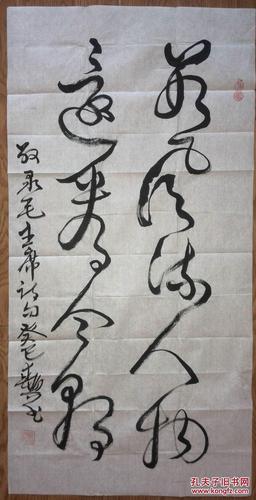 数风流人物
還看今朝
敬录毛主席诗句癸巳春
孔夫子旧书网
www.kongfz.com